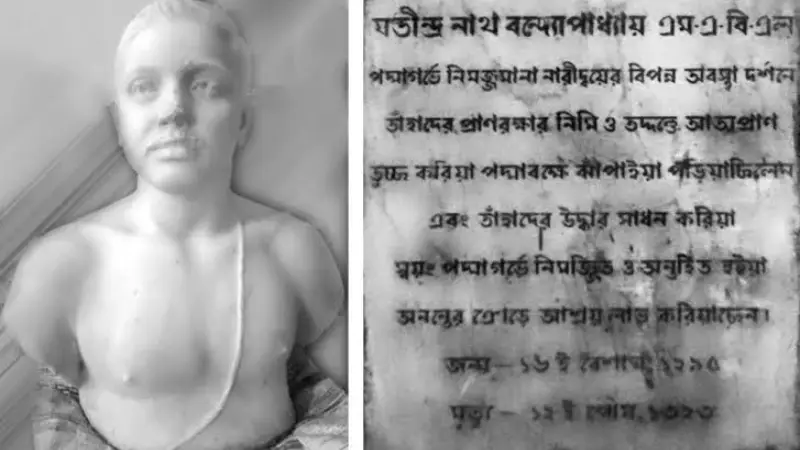 যতীন্দ্র নাথ বন্দ্যোপাধ্যায় এম·এ·বি·এল
পদ্মাগর্ভে নিমজ্জমানা নারীদ্বয়ের বিপন্ন অবস্থা দর্শনে
তাঁহাদের প্রাণরক্ষার নিমি ও তদ্দণ্ডে আত্মপ্রাণ
তুচ্ছ করিয়া পদ্মাবক্ষে ঝাঁপাইয়া পড়িয়াছিলেন
এবং তাঁহাদের উদ্ধার সাধন করিয়া
স্বয়ং পদ্মাগর্ভে নিমজ্জিত ও অন্তর্হিত হইয়া
অনন্তের ক্রোড়ে আশ্রয় লাভ করিয়াছেন।
জন্ম — ১৬ ই বৈশাখ, ১২৯৫
মৃত্যু — ১২ ই পৌষ, ১৩২৩